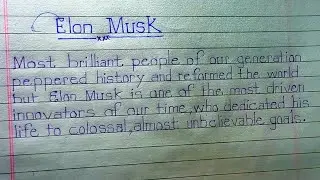 Elon Musk
Most brilliant people of our generation
peppered history and reformed the world
but Elon Musk is one of the most driven
innovators of our time, who dedicated his
life to colossal, almost unbelievable goals.